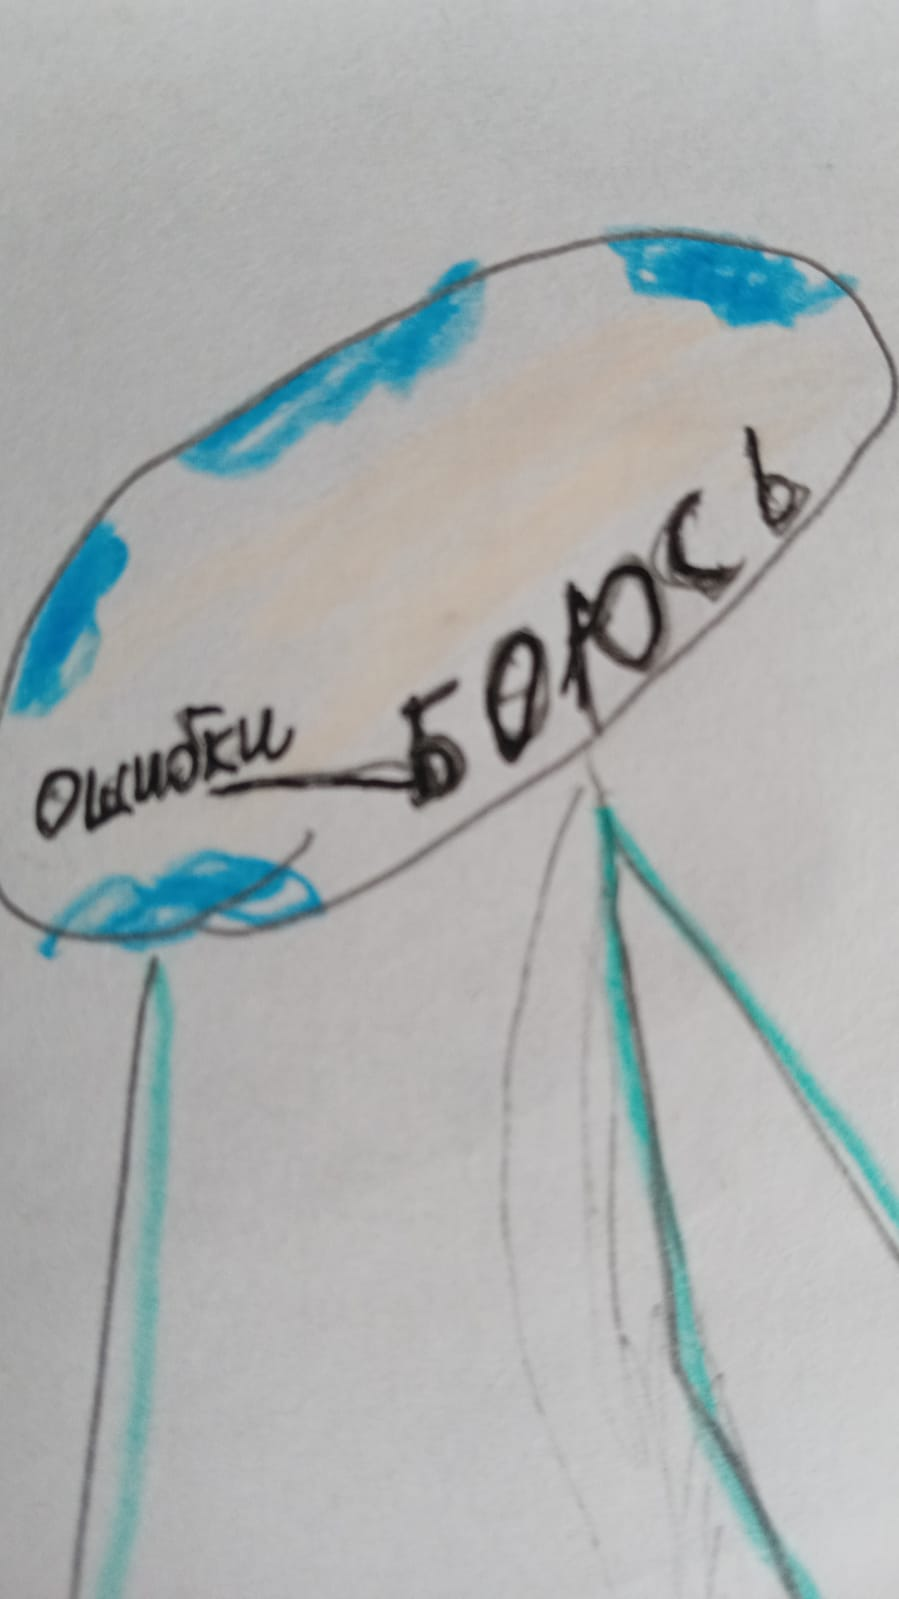 ошибки БОЮСЬ